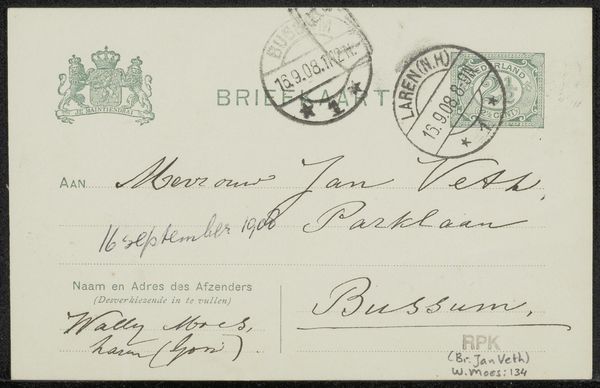 BUSSUM
16.9.08.1
1
LAREN (N.H.)
16.9.08.8-9N
1
NEDERLAND
2½
CENT
JE MAINTIENDRAI
BRIEFKAART
AAN Mevrouw Jan Veth,
16 september 1908
Parklaan
Naam en Adres des Afzenders
(Desverkiezende in te vullen)
Bussum.
Wally Moes,
Laren (Gooi).
RPK
(Br. Jan Veth)
W. Moes: 134